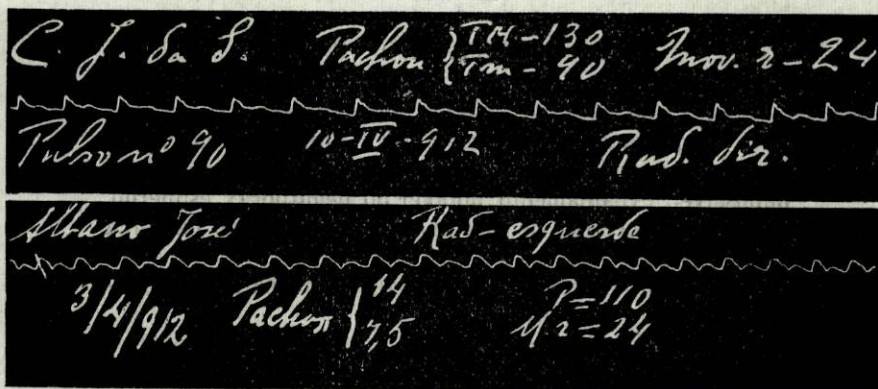 C. J. da S. Pachon { TM-130 Mov. r-24
Tm-90
Pulso nº 90 10-IV-912 Rad. dir.
Albano José Rad-esquerda
3/4/912 Pachon { 14 P=110
7,5 M r=24